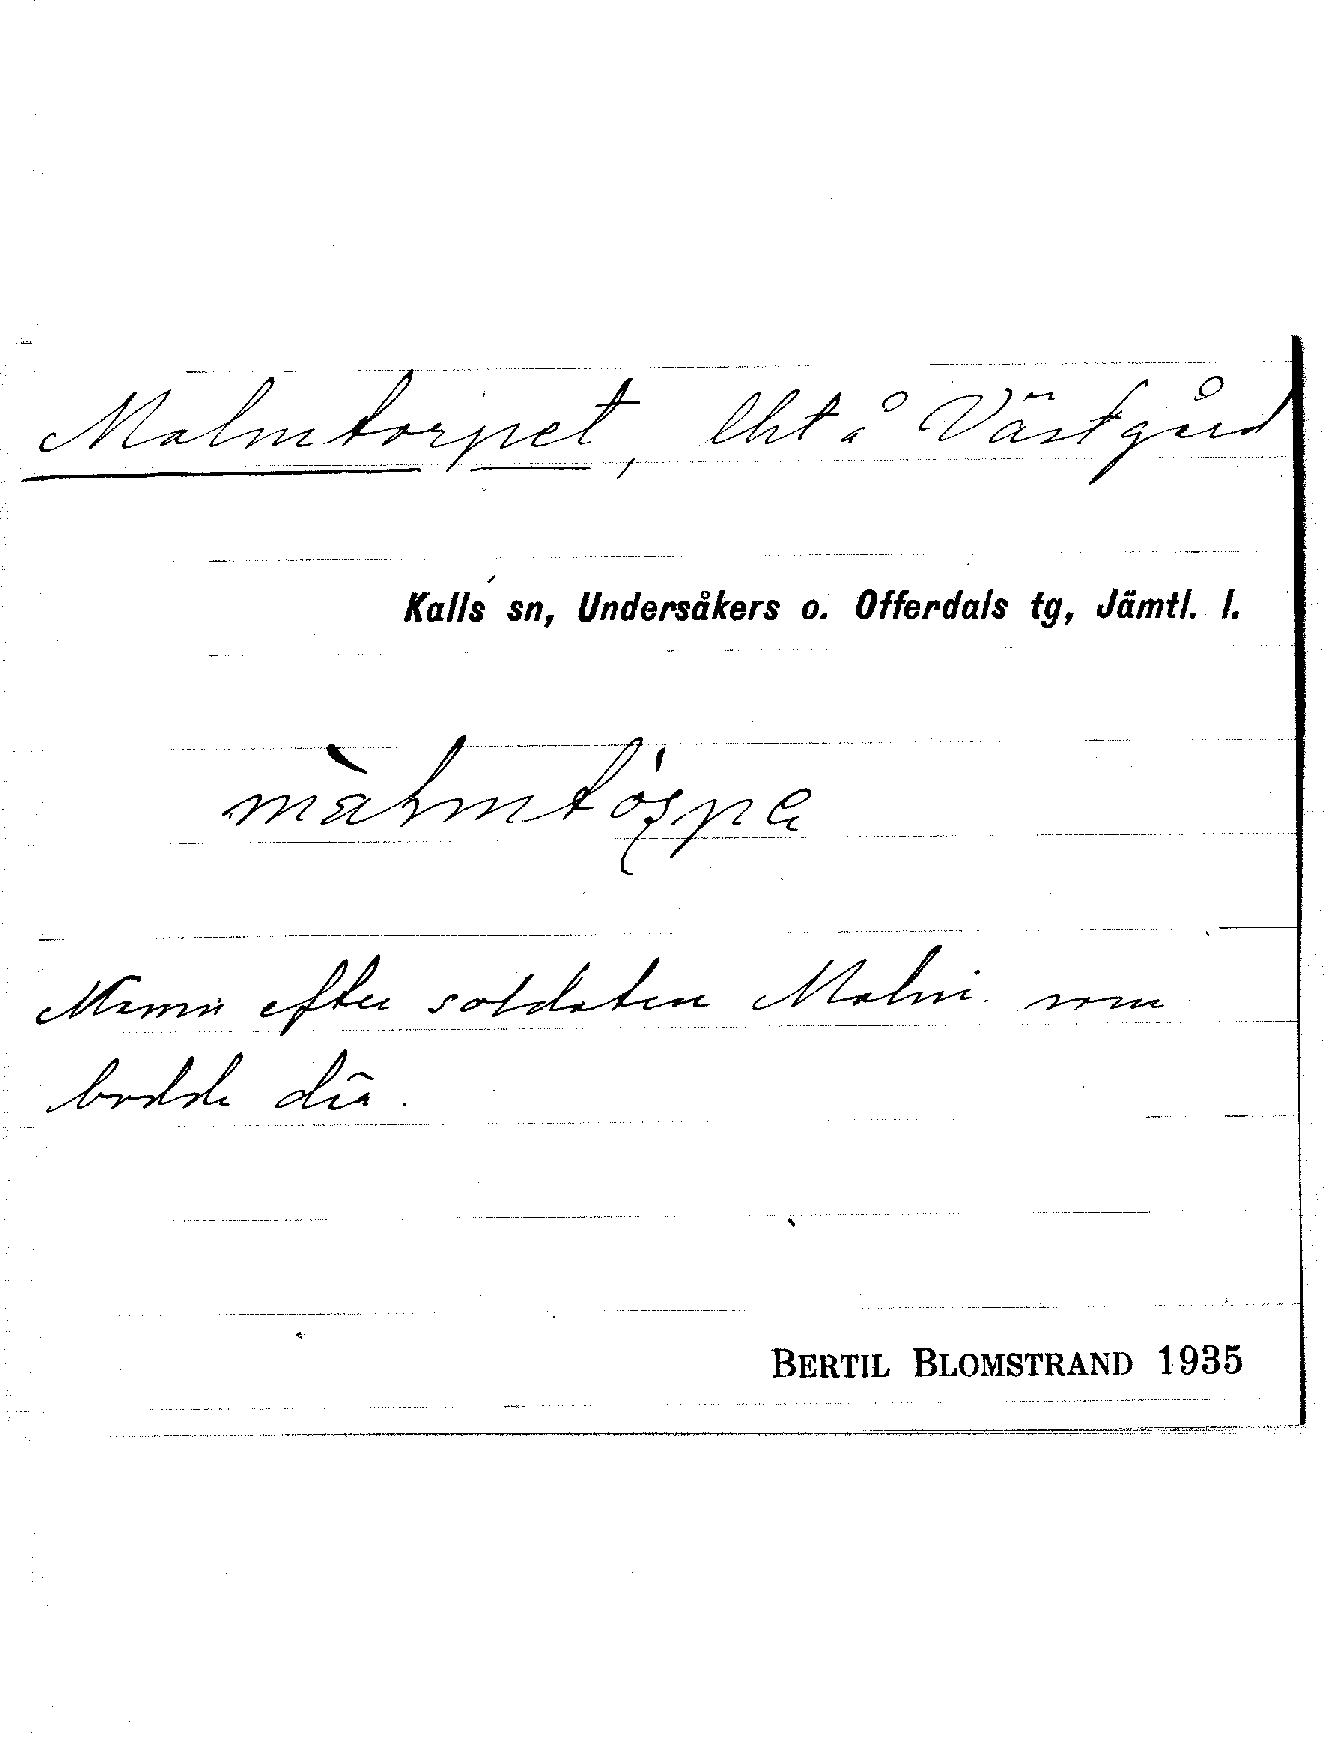 Malmtorpet, lht å Västgård
Kalls sn, Undersåkers o. Offerdals tg, Jämtl. l.
Namn efter soldaten Malm som
bodde där.
BERTIL BLOMSTRAND 1935